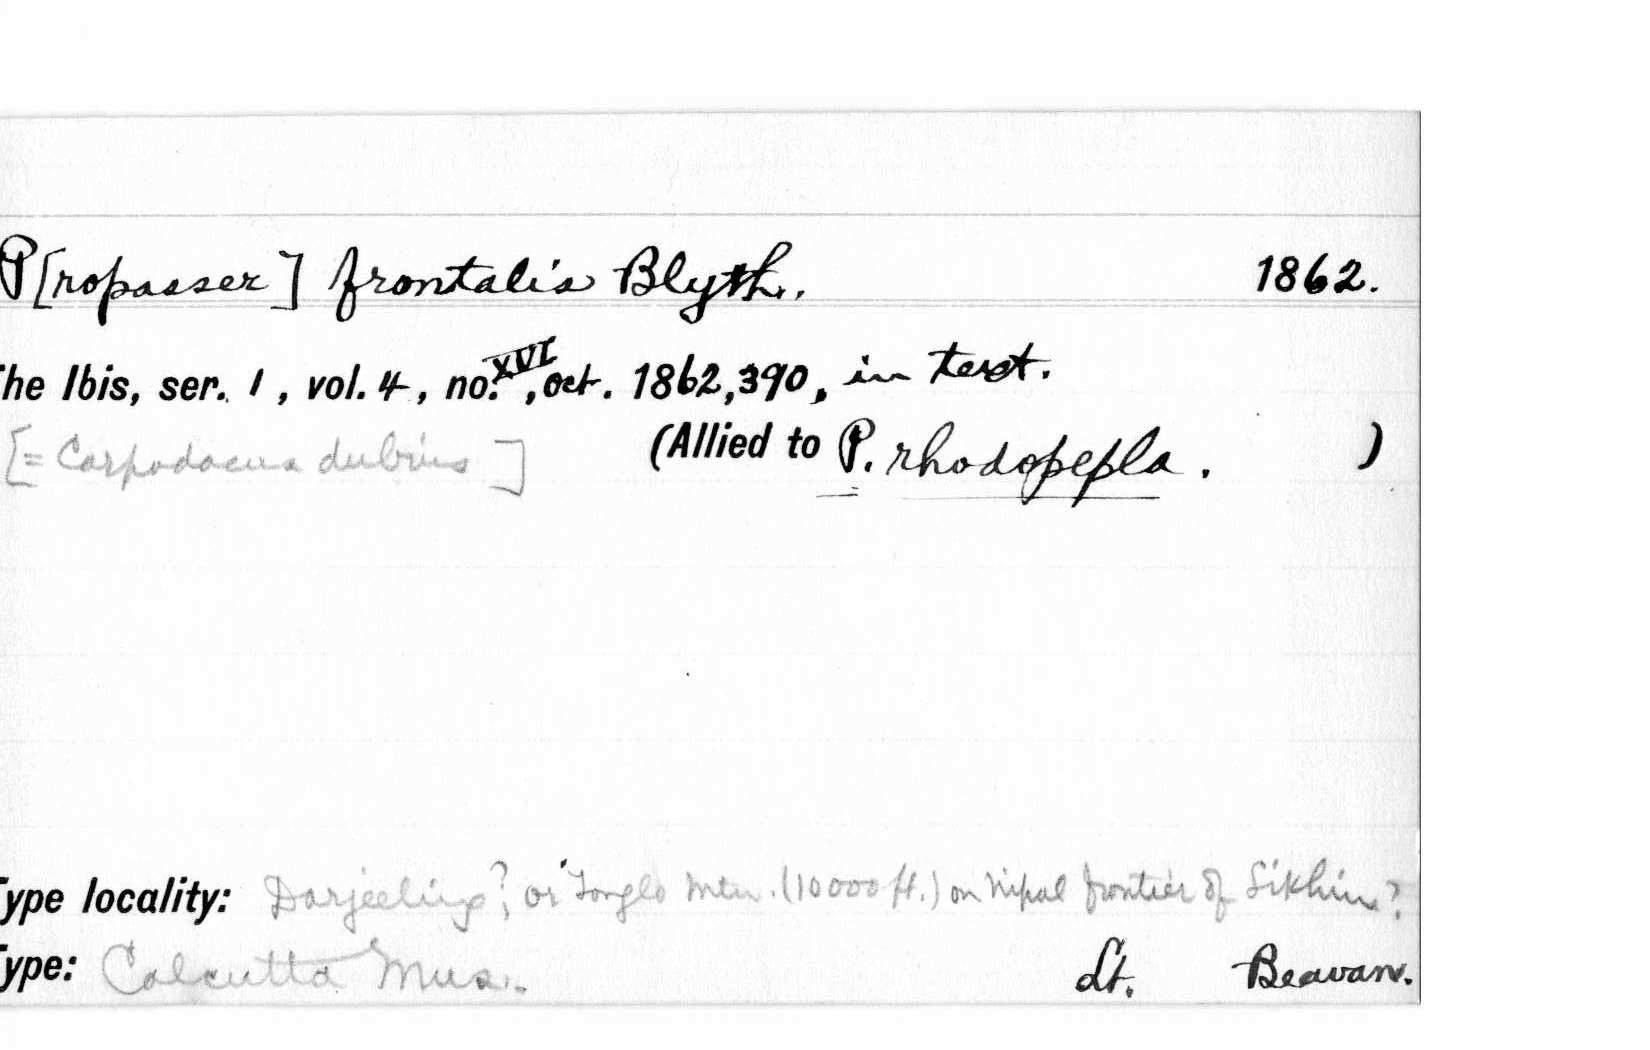 P[ropasser] frontalis Blyth. 1862.
The Ibis, ser. 1, vol. 4, no. XVI, Oct. 1862, 390, in text.
[= Carpodacus dubius] (Allied to P. rhodopepla. )
Type locality: Darjeeling?, or "Tonglo Mtn. (10000 ft.) on Nipal frontier of Sikhim?
Type: Calcutta Mus. Lt. Beavan.